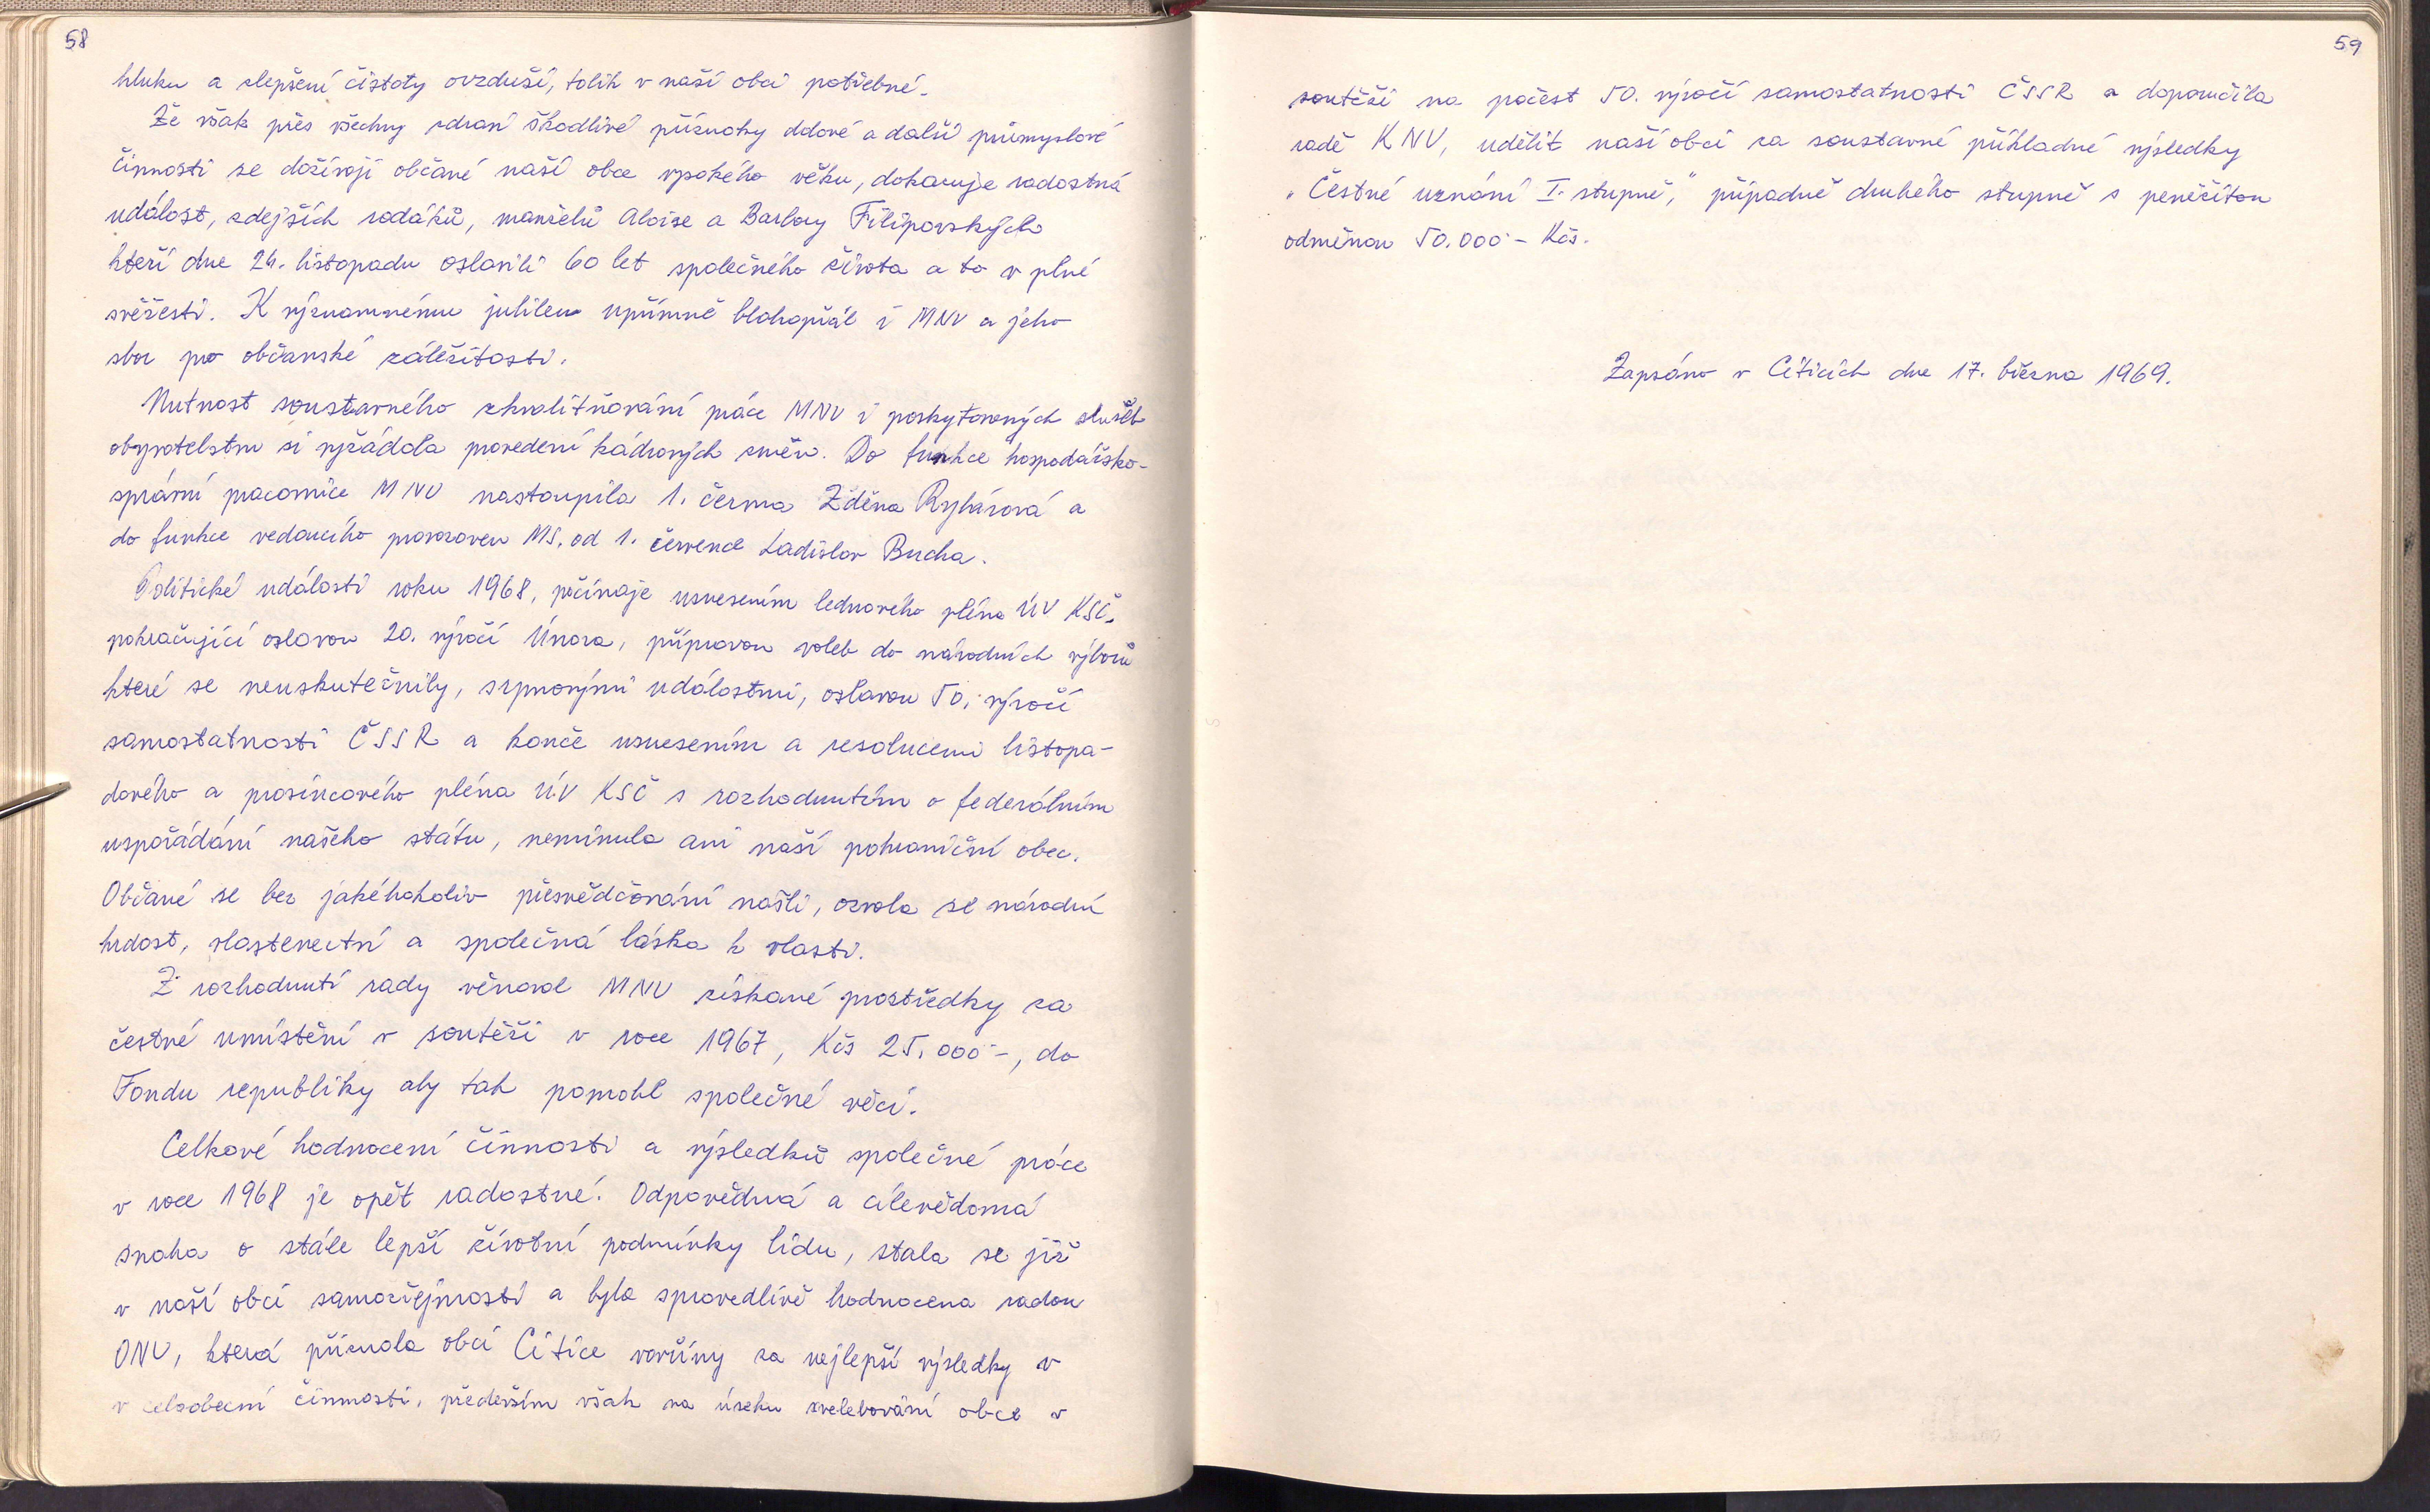 58
hluku a zlepšení čistoty ovzduší, tolik v naší obci potřebné.
Že však přes všechny zdraví škodlivé příznaky důlové a další průmyslové
činnosti se dožívají občané naší obce vysokého věku, dokazuje radostná
událost, zdejších rodáků, manželů Aloise a Barbory Filipovských
kteří dne 24. listopadu oslavili 60 let společného života a to v plné
svěžesti. K významnému jubileu upřímně blahopřál i MNV a jeho
sbor pro občanské záležitosti.
Nutnost soustavného zkvalitňování práce MNV i poskytovaných služeb
obyvatelstvu si vyžádala provedení kádrových změn. Do funkce hospodářsko-
správní pracovnice MNV nastoupila 1. června Zděna Rybárová a
do funkce vedoucího provozoven MS. od 1. července Ladislav Bucha.
Politické události roku 1968, počínaje usnesením lednového pléna ÚV KSČ.
pokračující oslavou 20. výročí Února, přípravou voleb do národních výborů
které se neuskutečnily, srpnovými událostmi, oslavou 50. výročí
samostatnosti ČSSR a konče usnesením a resolucemi listopa-
dového a prosincového pléna ÚV KSČ s rozhodnutím o federálním
uspořádání našeho státu, neminula ani naší pohraniční obec.
Občané se bez jakéhokoliv přesvědčování našli, ozvala se národní
hrdost, vlastenectví a společná láska k vlasti.
Z rozhodnutí rady věnoval MNV získané prostředky za
čestné umístění v soutěži v roce 1967, Kčs 25.000-, do
Fondu republiky aby tak pomohl společné věci.
Celkové hodnocení činnosti a výsledků společné práce
v roce 1968 je opět radostné. Odpovědná a cílevědomá
snaha o stále lepší životní podmínky lidu, stala se již
v naší obci samozřejmostí a byla spravedlivě hodnocena radou
ONV, která přiznala obci Citice vavříny za nejlepší výsledky v
v celoobecní činnosti, především však na úseku zvelebování obce v
59
soutěži na počest 50. výročí samostatnosti ČSSR a doporučila
radě KNV, udělit naší obci za soustavné příkladné výsledky
„Čestné uznání I. stupně," případně druhého stupně s peněžitou
odměnou 50.000- Kčs.
Zapsáno v Citicích dne 17. března 1969.